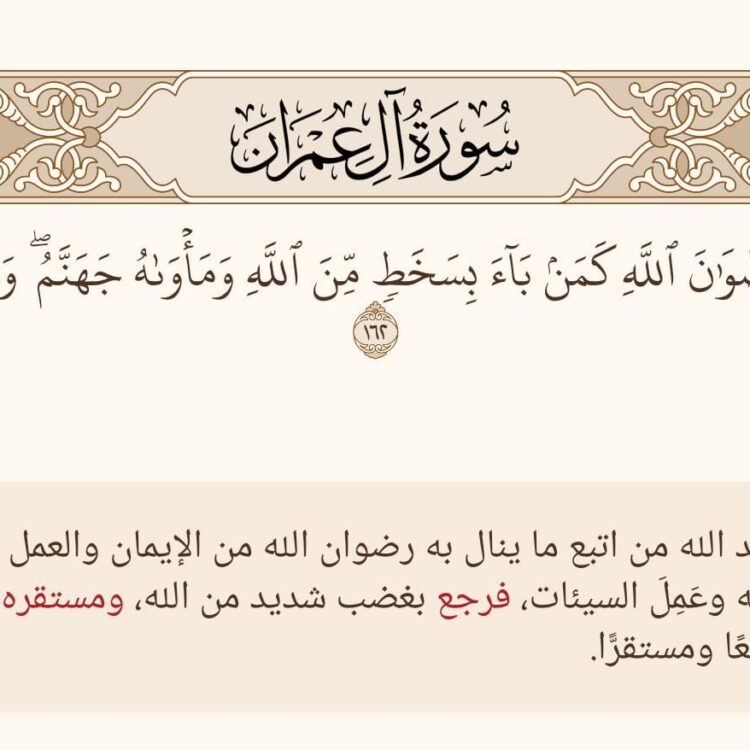 سُورَةُ آلِ عِمْرَانَ
ٱللَّهِ كَمَنۢ بَآءَ بِسَخَطٖ مِّنَ ٱللَّهِ وَمَأۡوَىٰهُ جَهَنَّمُۖ
١٦٢
الله من اتبع ما ينال به رضوان الله من الإيمان والعمل
وعَمِلَ السيئات، فرجع بغضب شديد من الله، ومستقره
ومستقرًّا.